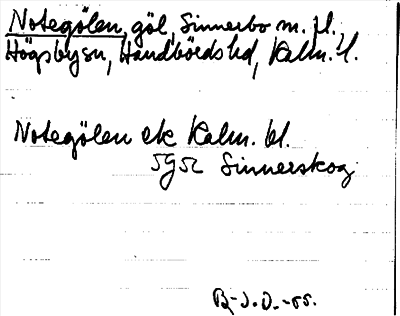 Notegölen, göl, Sinnerbo m. fl.,
Högsbysn, Handbördshd, Kalm. l.
Notegölen ek Kalm. bl.
5g5c Sinnerskog
B-J.O.-55.